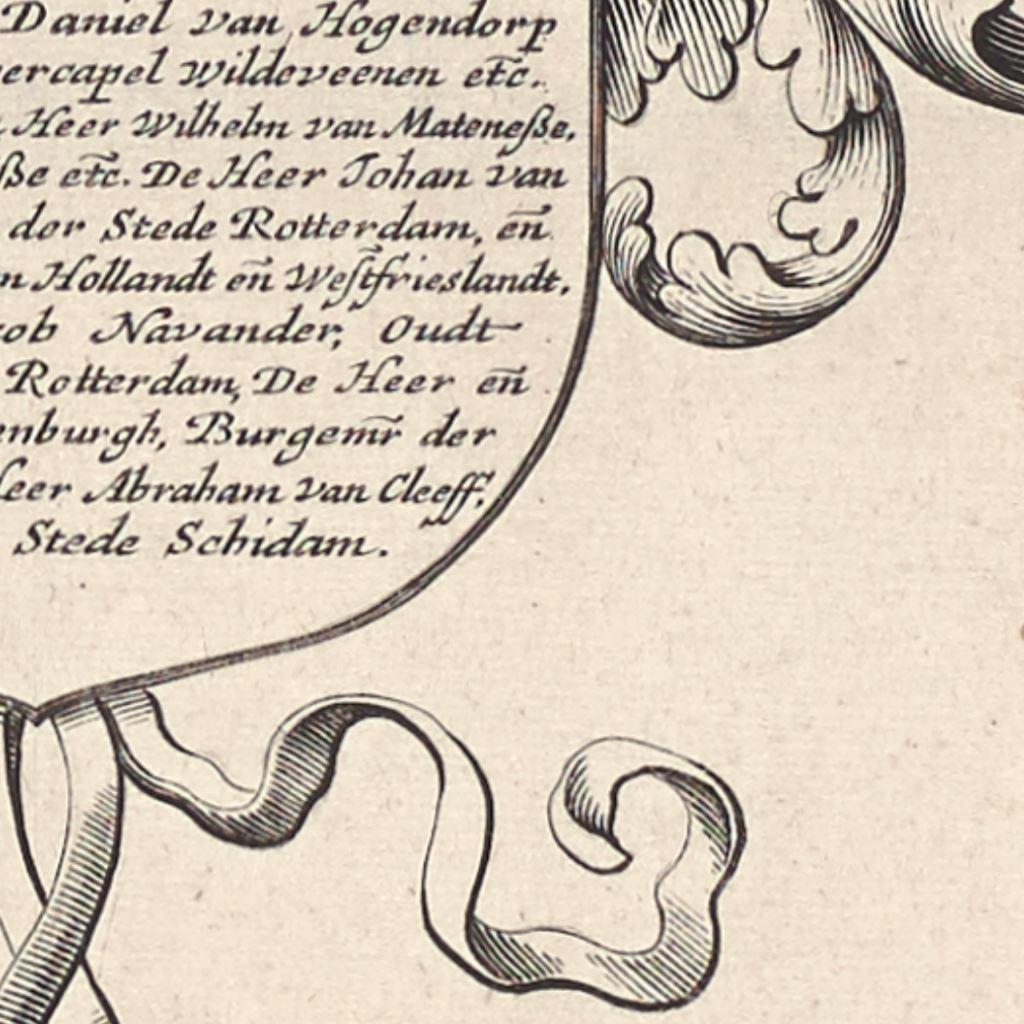 Daniel van Hogendorp
ercapel Wildeveenen etc̃.
Heer Wilhelm van Mateneße,
ße etc̃. De Heer Johan van
der Stede Rotterdam, en̄
n Hollandt en̄ Westfrieslandt,
ob Navander, Oudt
Rotterdam, De Heer en̄
enburgh, Burgem̃r der
eer Abraham van Cleeff,
Stede Schidam.